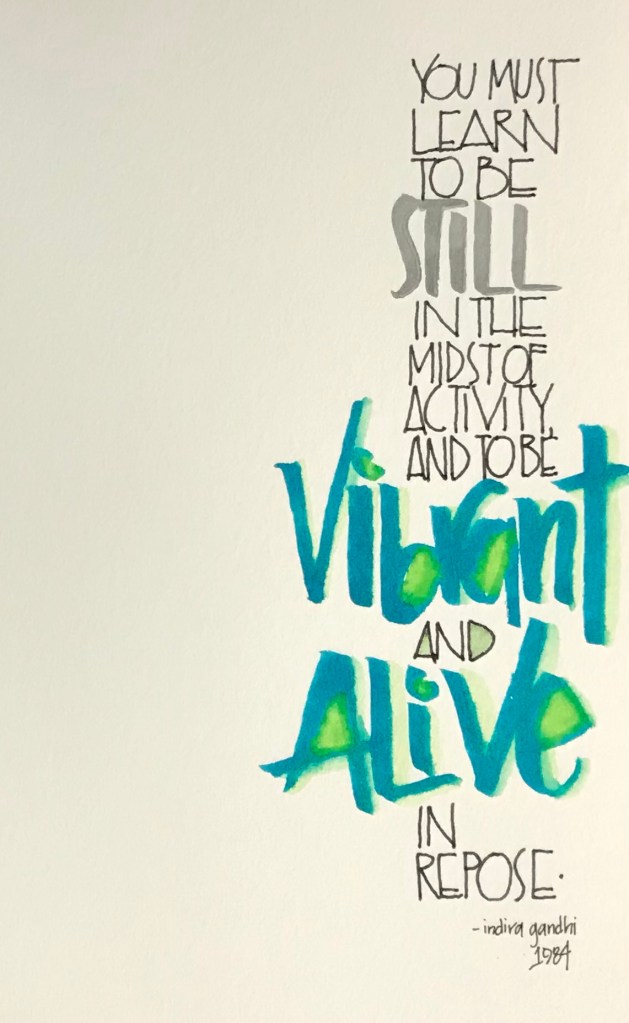 YOU MUST
LEARN
TO BE
STILL
IN THE
MIDST OF
ACTIVITY,
AND TO BE
Vibrant
AND
ALiVe
IN
REPOSE.
- indira gandhi
1984